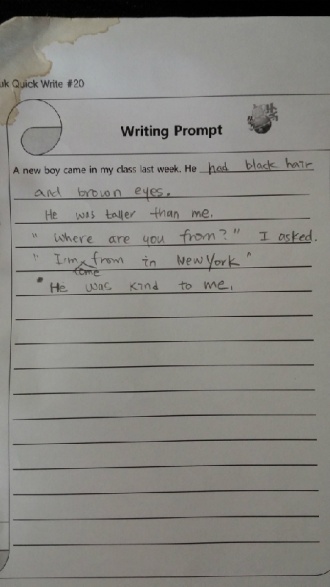 uk Quick Write #20
Writing Prompt
A new boy came in my class last week. He had black hair
and brown eyes.
He was taller than me.
" where are you from?" I asked.
" I'm from in New York "
came
He was kind to me.